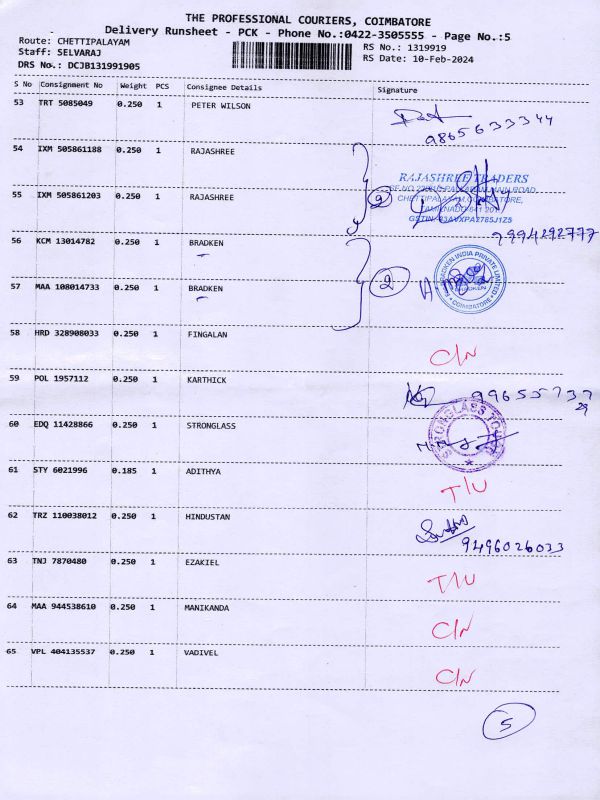 THE PROFESSIONAL COURIERS, COIMBATORE
Delivery Runsheet - PCK - Phone No.:0422-3505555 - Page No.:5
Route: CHETTIPALAYAM
RS No.: 1319919
Staff: SELVARAJ
RS Date: 10-Feb-2024
DRS No.: DCJB131991905
S No Consignment No Weight PCS Consignee Details Signature
53 TRT 5085049 0.250 1 PETER WILSON
9865633344
54 IXM 505861188 0.250 1 RAJASHREE
RAJASHREE TRADERS
55 IXM 505861203 0.250 1 RAJASHREE
CHETTIPALAYAM, COIMBATORE,
56 KCM 13014782 0.250 1 BRADKEN
9994292777
BRADKEN INDIA PRIVATE LIMITED
COIMBATORE
57 MAA 108014733 0.250 1 BRADKEN
2
58 HRD 328908033 0.250 1 FINGALAN
C/N
59 POL 1957112 0.250 1 KARTHICK
60 EDQ 11428866 0.250 1 STRONGLASS
61 STY 6021996 0.185 1 ADITHYA
T/U
62 TRZ 110038012 0.250 1 HINDUSTAN
9496026033
63 TNJ 7870480 0.250 1 EZAKIEL
T/U
64 MAA 944538610 0.250 1 MANIKANDA
C/N
65 VPL 404135537 0.250 1 VADIVEL
C/N
5